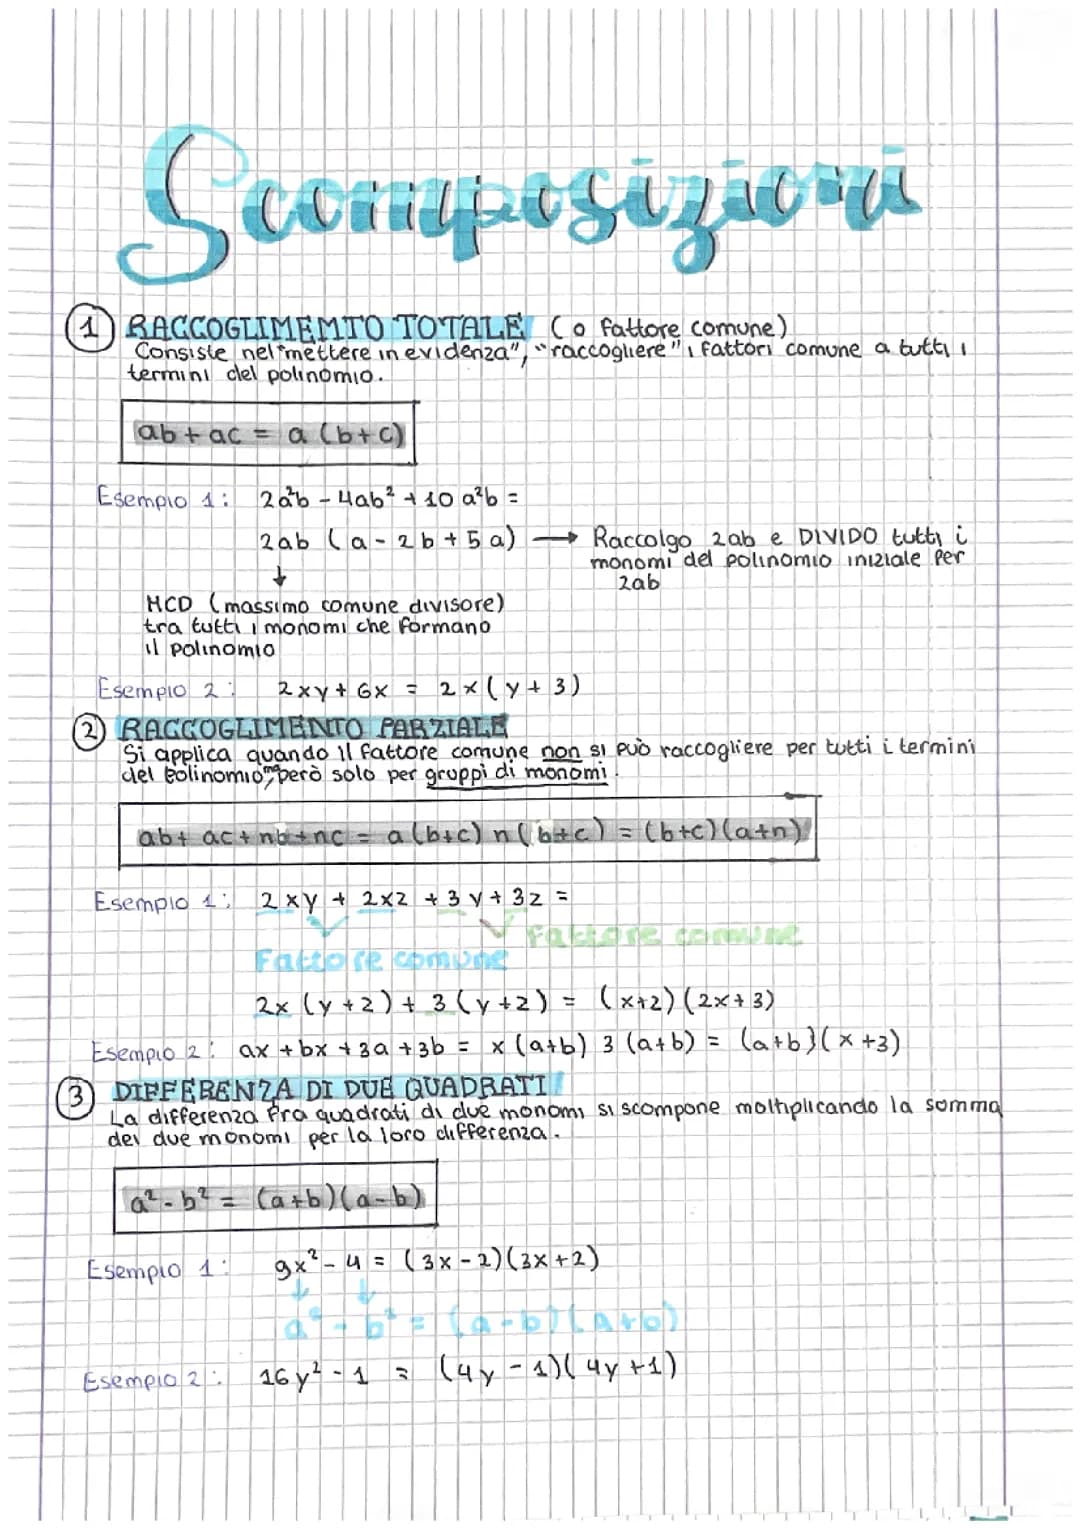 Scomposizioni
1 RACCOGLIMEMTO TOTALE (o fattore comune)
Consiste nel "mettere in evidenza", "raccogliere" i fattori comune a tutti i
termini del polinomio.
ab + ac = a (b+c)
Esempio 1: 2a²b - 4ab² + 10 a²b =
2ab (a - 2b + 5a) → Raccolgo 2ab e DIVIDO tutti i
monomi del polinomio iniziale per
2ab
↓
MCD (massimo comune divisore)
tra tutti i monomi che formano
il polinomio
Esempio 2: 2xy + 6x = 2x(y + 3)
2 RACCOGLIMENTO PARZIALE
Si applica quando il fattore comune non si può raccogliere per tutti i termini
del polinomio, ma però solo per gruppi di monomi.
ab + ac + nb + nc = a(b+c) n(b+c) = (b+c)(a+n)
Esempio 1: 2xy + 2xz + 3y + 3z =
fattore comune
Fattore comune
2x (y+z) + 3(y+z) = (x+z)(2x+3)
Esempio 2: ax + bx + 3a + 3b = x (a+b) 3 (a+b) = (a+b)(x+3)
3 DIFFERENZA DI DUE QUADRATI
La differenza fra quadrati di due monomi si scompone moltiplicando la somma
dei due monomi per la loro differenza.
a² - b² = (a+b)(a-b)
Esempio 1: 9x² - 4 = (3x - 2)(3x + 2)
↓ ↓
a² - b² = (a-b)(a+b)
Esempio 2: 16y² - 1 = (4y - 1)(4y + 1)